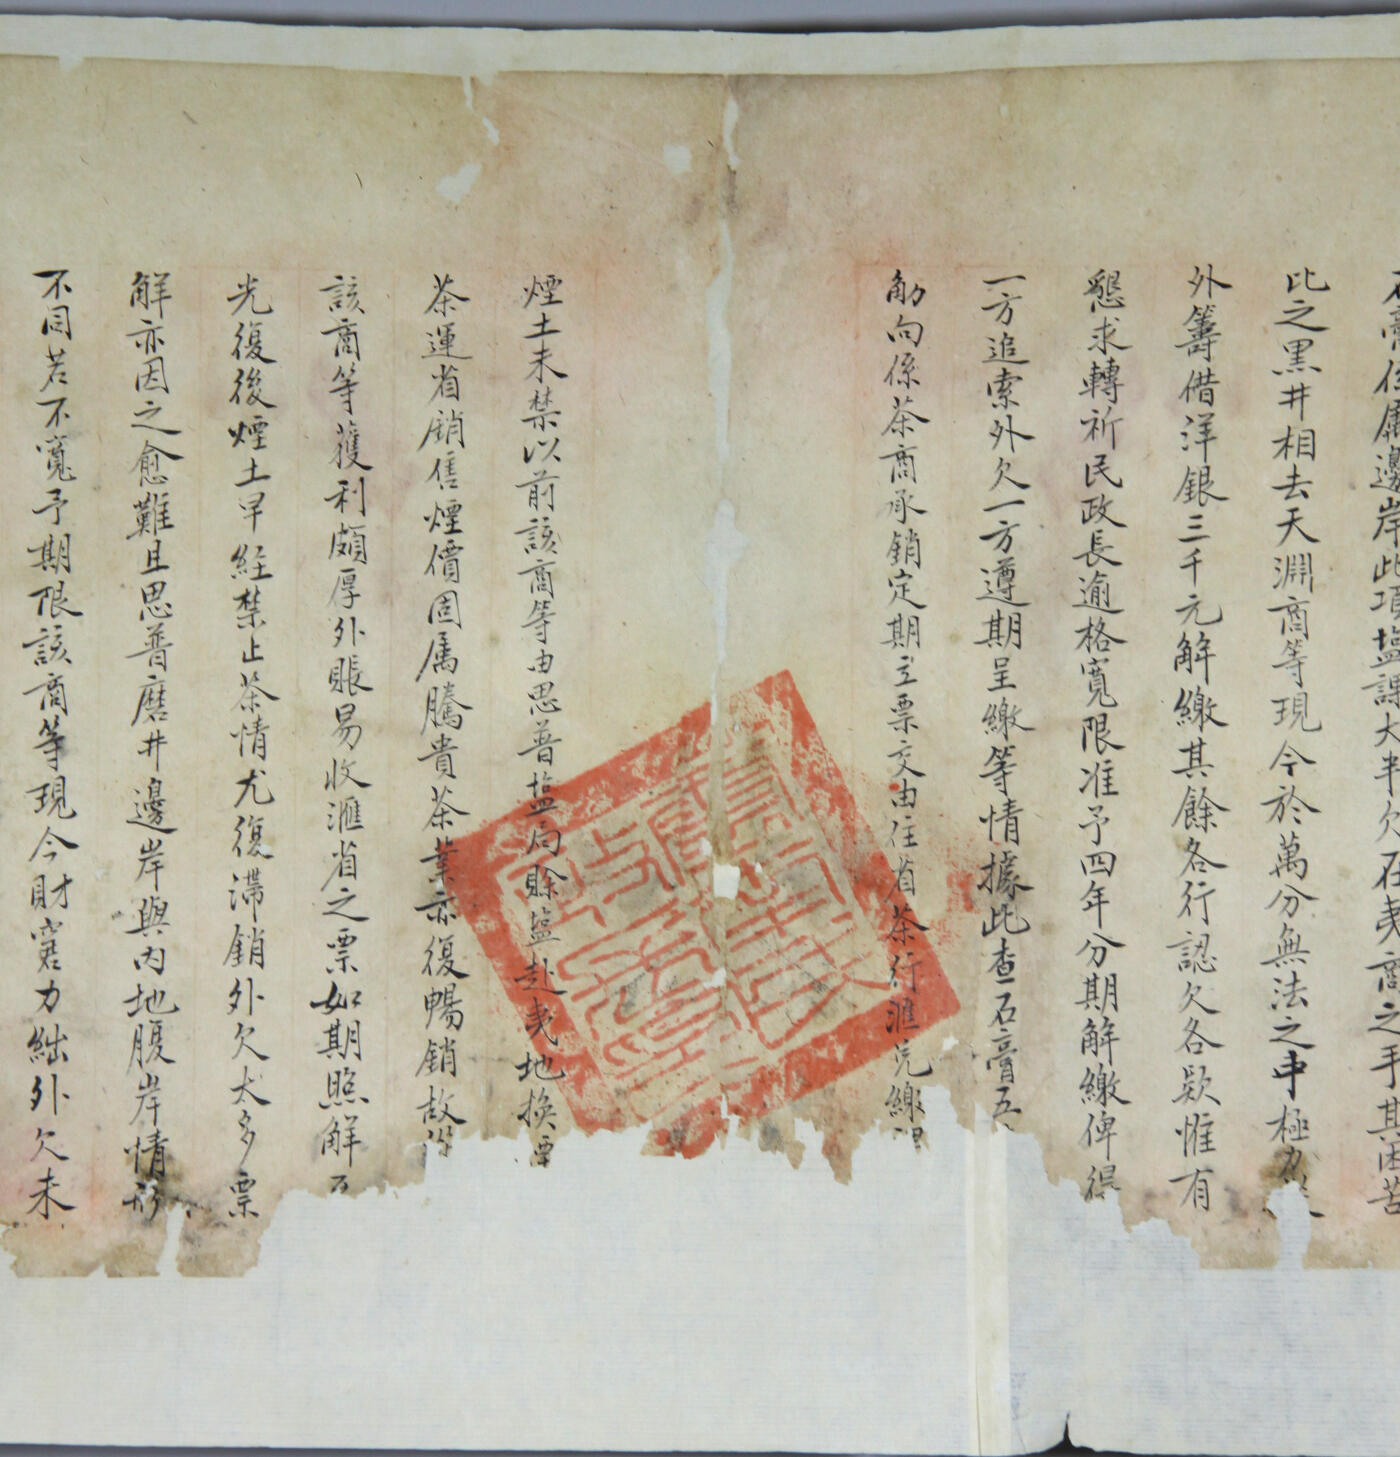 石膏係屬邊岸此項塩課大半欠在夷商之手其困苦
比之黑井相去天淵商等現今於萬分無法之中極力
外籌借洋銀三千元解繳其餘各行認欠各欵惟有
懇求轉祈民政長逾格寬限准予四年分期解繳俾得
一方追索外欠一方遵期呈繳等情據此查石膏五
觔向係茶商承銷定期立票交由住省茶行滙兌繳
煙土未禁以前該商等由思普塩局賒塩赴夷地換
茶運省銷售煙價固属騰貴茶業亦復暢銷故
該商等獲利頗厚外賬易收滙省之票如期照解
光復後煙土早經禁止茶情尤復滯銷外欠太多票
解亦因之愈難且思普磨井邊岸與内地腹岸情形
不同若不寬予期限該商等現今財窘力絀外欠未